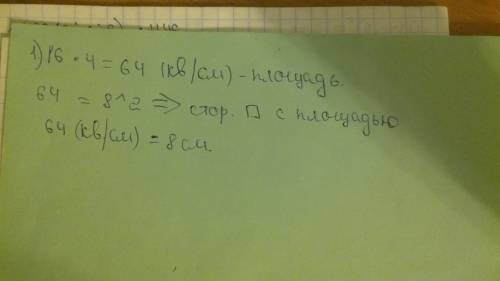 1) 16 · 4 = 64 (кв/см) - площадь.
64 = 8^2 => стор. □ с площадью
64 (кв/см) = 8 см.